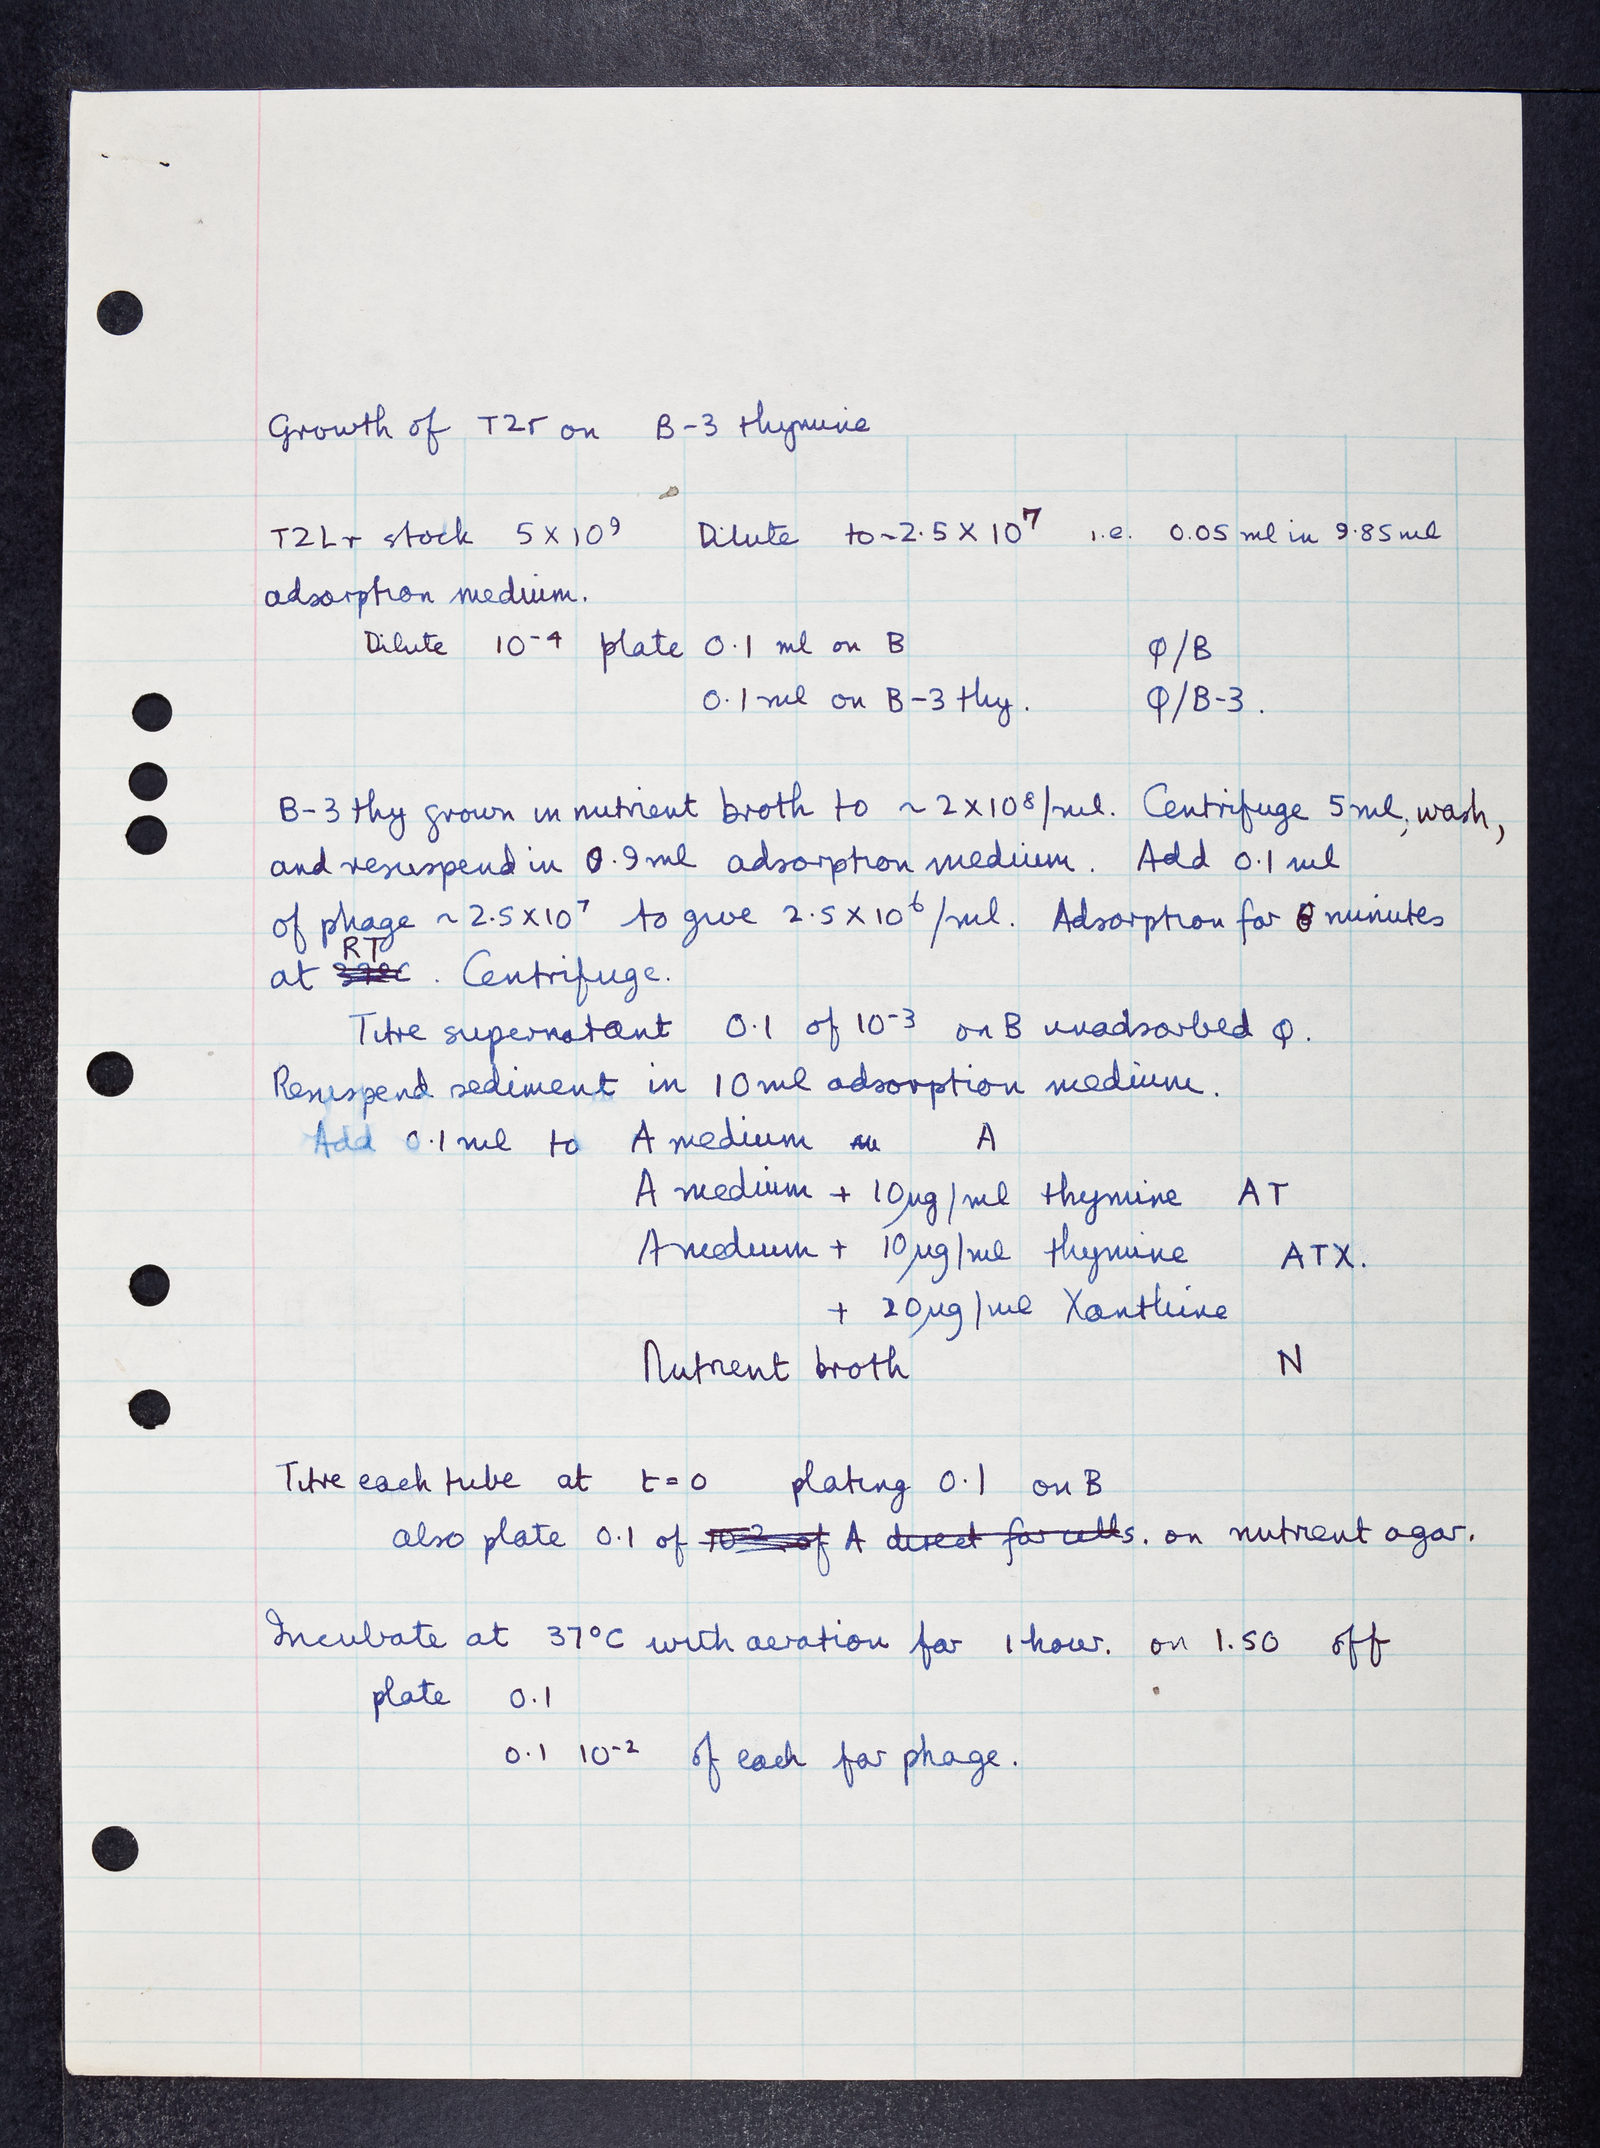 Growth of T2r on B-3 thymine
T2Lr stock 5 x 10⁹ Dilute to ~2.5 X 10⁷ i.e. 0.05 ml in 9.85 ml
adsorption medium.
Dilute 10⁻⁴ plate 0.1 ml on B φ/B
0.1 ml on B-3 thy. φ/B-3.
B-3 thy grown in nutrient broth to ~ 2 x 10⁸/ml. Centrifuge 5 ml, wash,
and resuspend in 0.9 ml adsorption medium. Add 0.1 ml
of phage ~ 2.5 x 10⁷ to give 2.5 x 10⁶/ml. Adsorption for minutes
RT
at 37°C. Centrifuge.
Titre supernatant 0.1 of 10⁻³ on B unadsorbed φ.
Resuspend sediment in 10 ml adsorption medium.
Add 0.1 ml to A medium A
A medium + 10 µg/ml thymine AT
A medium + 10 µg/ml thymine ATX.
+ 20 µg/ml Xanthine
Nutrient broth N
Titre each tube at t=0 plating 0.1 on B
also plate 0.1 of 10⁻² of A direct for cells. on nutrient agar.
Incubate at 37°C with aeration for 1 hour. on 1.50 off
plate 0.1
0.1 10⁻² of each for phage.